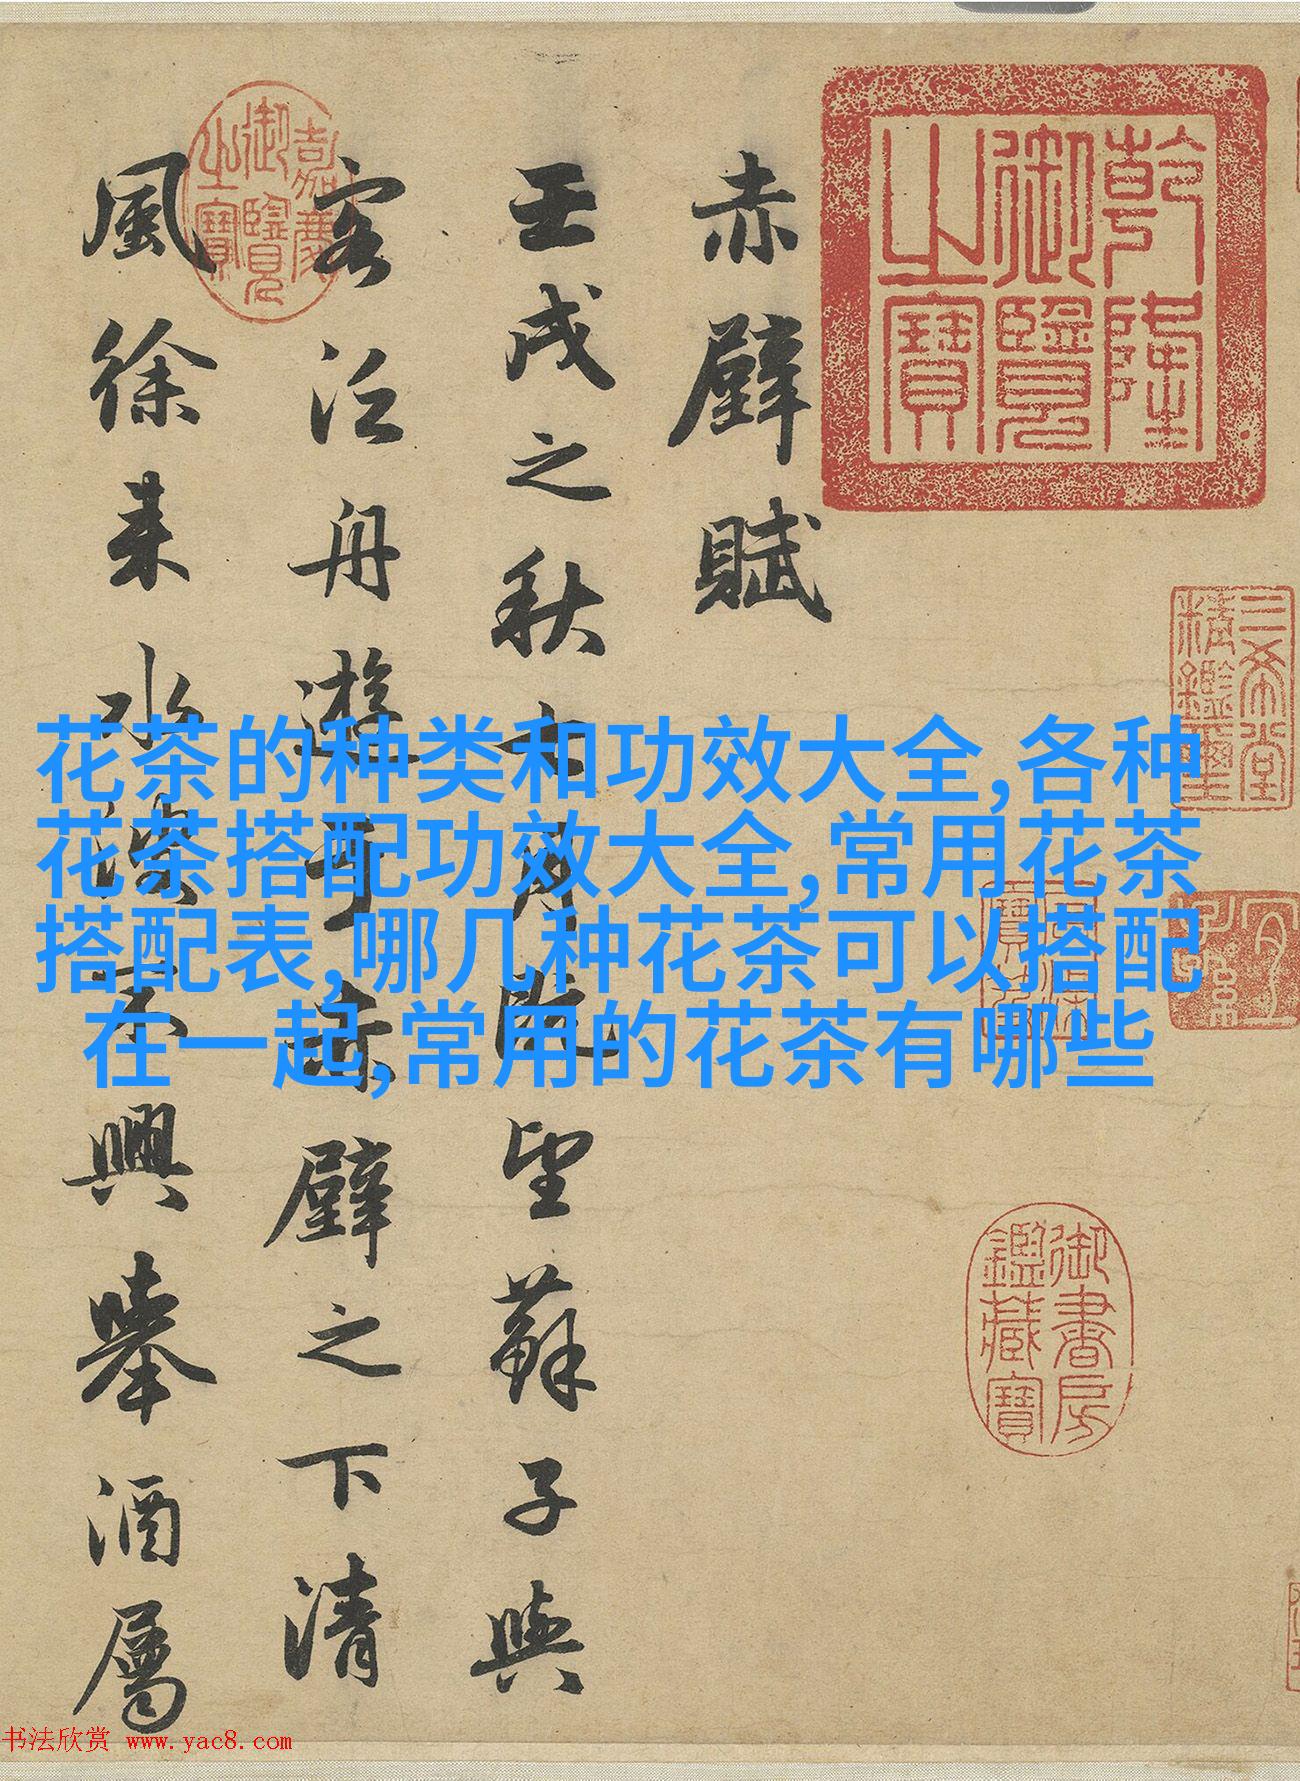 乾隆
御覽
之寶
三希堂
精鑑璽
宜
子孫
石渠
寶笈
御書房
鑑藏寶
赤壁賦
壬戌之秋七月既望蘇子與
客泛舟遊于赤壁之下清
嘉慶
御覽
之寶
風徐来水波不興舉酒屬
花茶的种类和功效大全,各种
花茶搭配功效大全,常用花茶
搭配表,哪几种花茶可以搭配
在一起,常用的花茶有哪些
书法欣赏 www.yac8.com